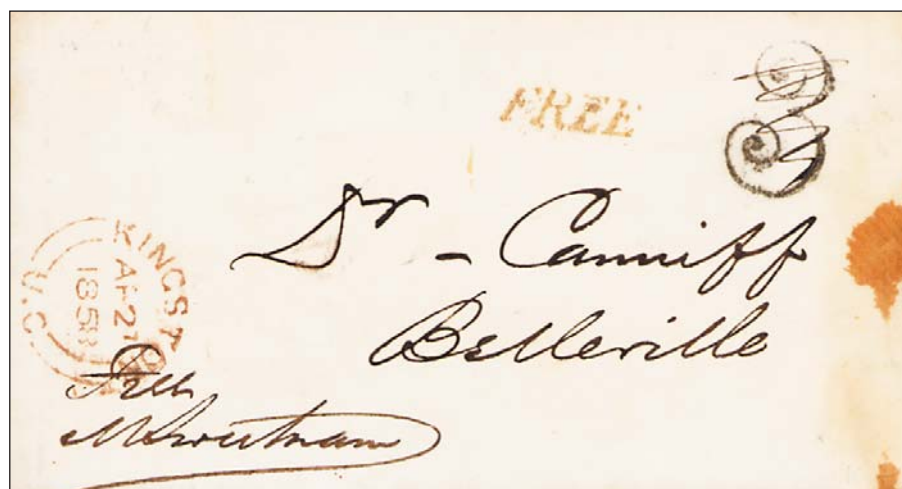 3
FREE
Dr - Canniff
Belleville
KINGST
AP 27
1858
U.C
Free
M Sweetnam